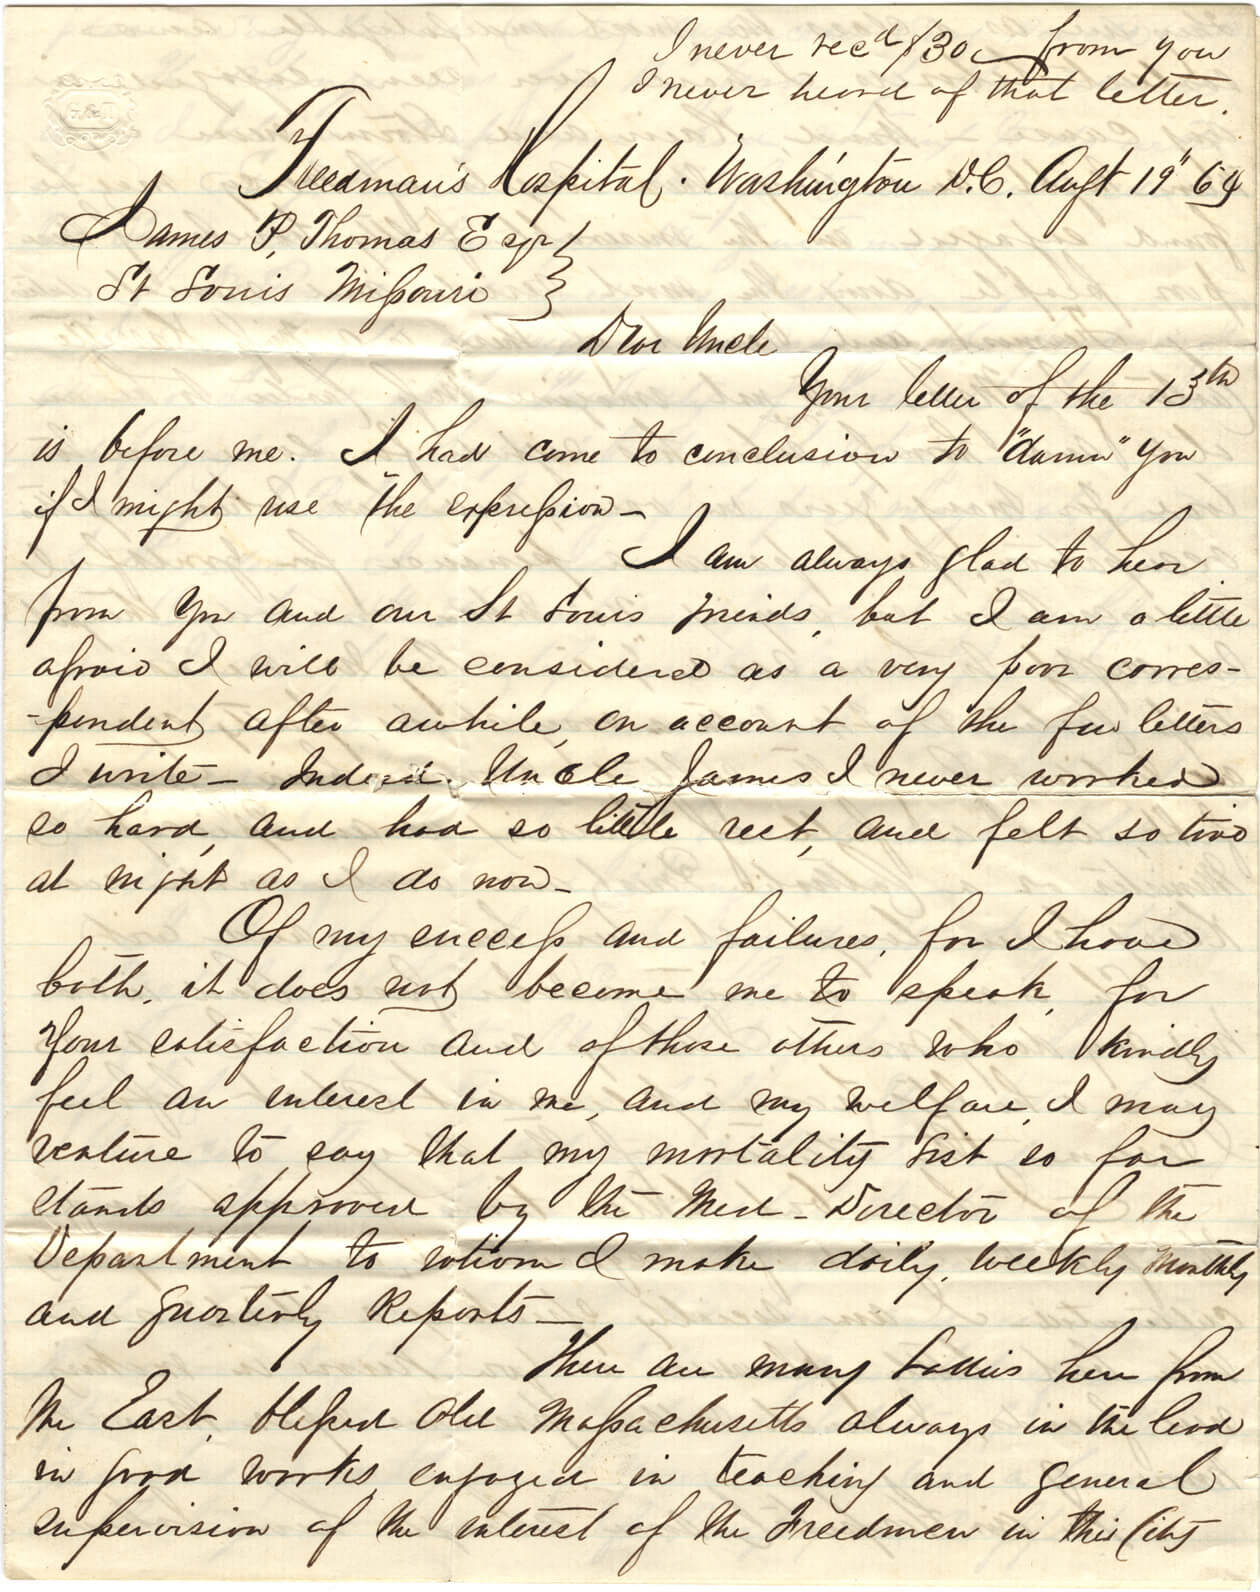 I never recd $30 from you
I never heard of that letter.
Freedman's Hospital. Washington D.C. Augt 19" 64
James P. Thomas Esqr
St Louis Missouri
Dear Uncle
Your letter of the 13th
is before me. I had come to conclusion to "damn" you
if I might use the expression—
I am always glad to hear
from you and our St Louis friends, but I am a little
afraid I will be considered as a very poor corres-
-pondent after awhile, on account of the few letters
I write— Indeed Uncle James I never worked
so hard, and had so little rest, and felt so tired
at night as I do now—
Of my success and failures, for I have
both, it does not become me to speak, for
your satisfaction and of those others who kindly
feel an interest in me, and my welfare, I may
venture to say that my mortality list so far
stands approved by the Med-Director of the
Department to whom I make daily, weekly monthly
and quarterly Reports—
There are many ladies here from
the East, blessed old Massachusetts always in the lead
in good works, engaged in teaching and general
supervision of the interest of the Freedmen in this City